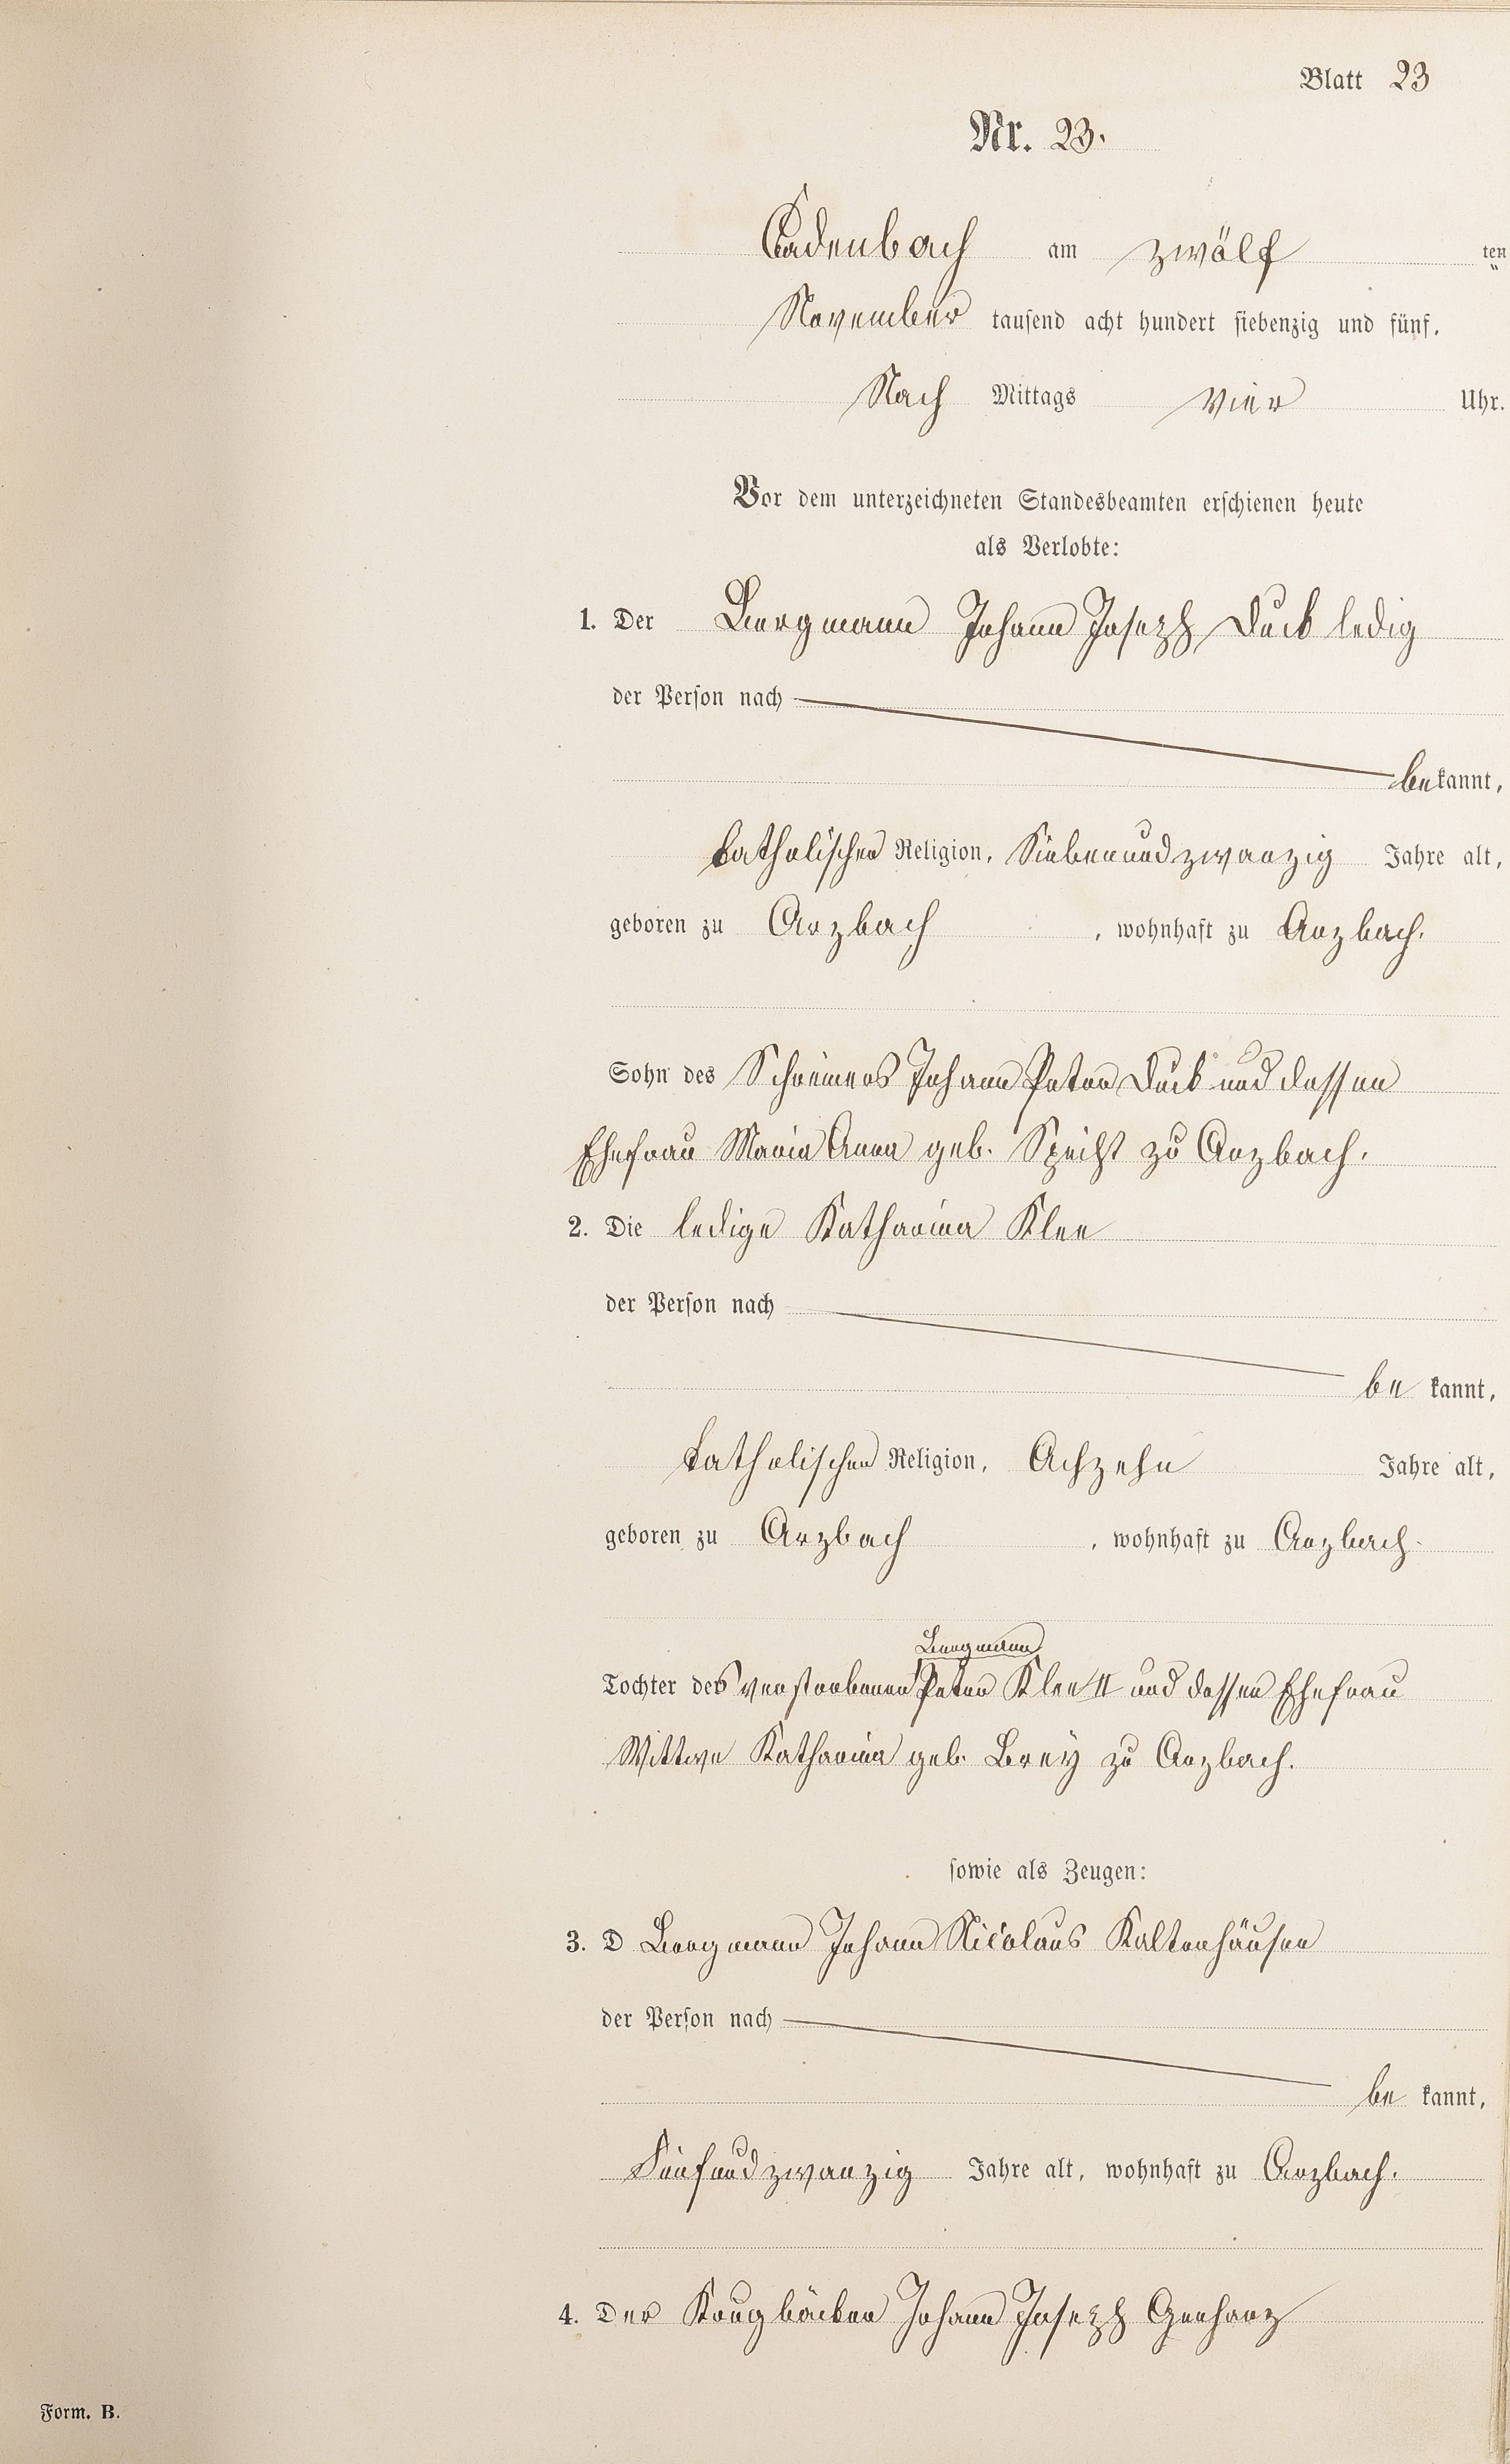 Blatt 23
Nr. 23.
Cadenbach am zwölf ten
November tausend acht hundert siebenzig und fünf.
Nach Mittags vier Uhr.
Vor dem unterzeichneten Standesbeamten erschienen heute
als Verlobte:
1. Der Bergmann Johann Joseph Duck ledig
der Person nach
bekannt,
katholischer Religion, Siebenundzwanzig Jahre alt,
geboren zu Arzbach, wohnhaft zu Arzbach.
Sohn des Schreiners Johann Peter Duck und dessen
Ehefrau Maria Anna geb. Specht zu Arzbach.
2. Die ledige Katharina Klee
der Person nach
be kannt,
katholischer Religion, Achzehn Jahre alt,
geboren zu Arzbach, wohnhaft zu Arzbach.
Bergmann
Tochter des verstorbenen Peter Klee II und dessen Ehefrau
Wittwe Katharina geb. Brey zu Arzbach.
sowie als Zeugen:
3. D Bergmann Johann Nicolaus Kaltenhäuser
der Person nach
be kannt,
Fünfundzwanzig Jahre alt, wohnhaft zu Arzbach.
4. Der Krugbäcker Johann Joseph Gerharz
Form. B.